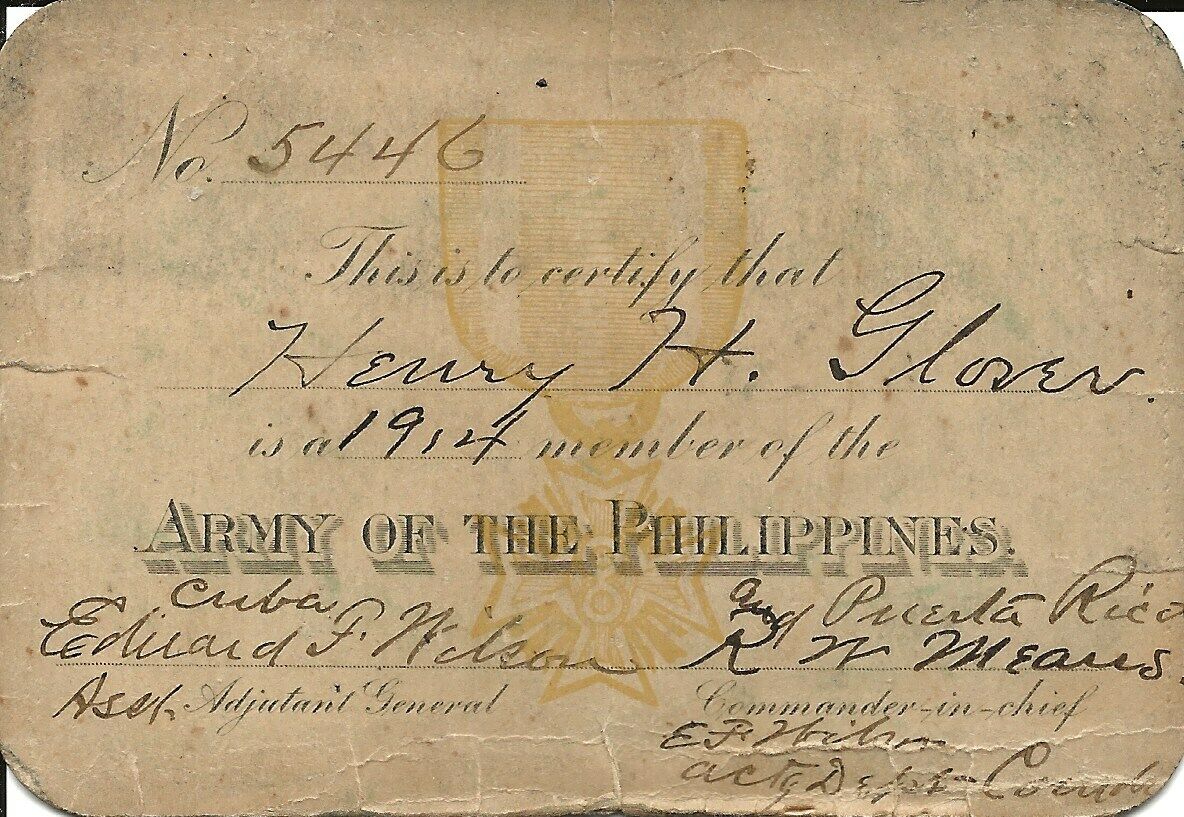 No. 5446
This is to certify that
Henry H. Glover.
is a 1914 member of the
ARMY OF THE PHILIPPINES.
Cuba and Puerta Rico
Edward F. Wilson R W Means.
Asst. Adjutant General Commander-in-chief
E F Wilson
actg Dept